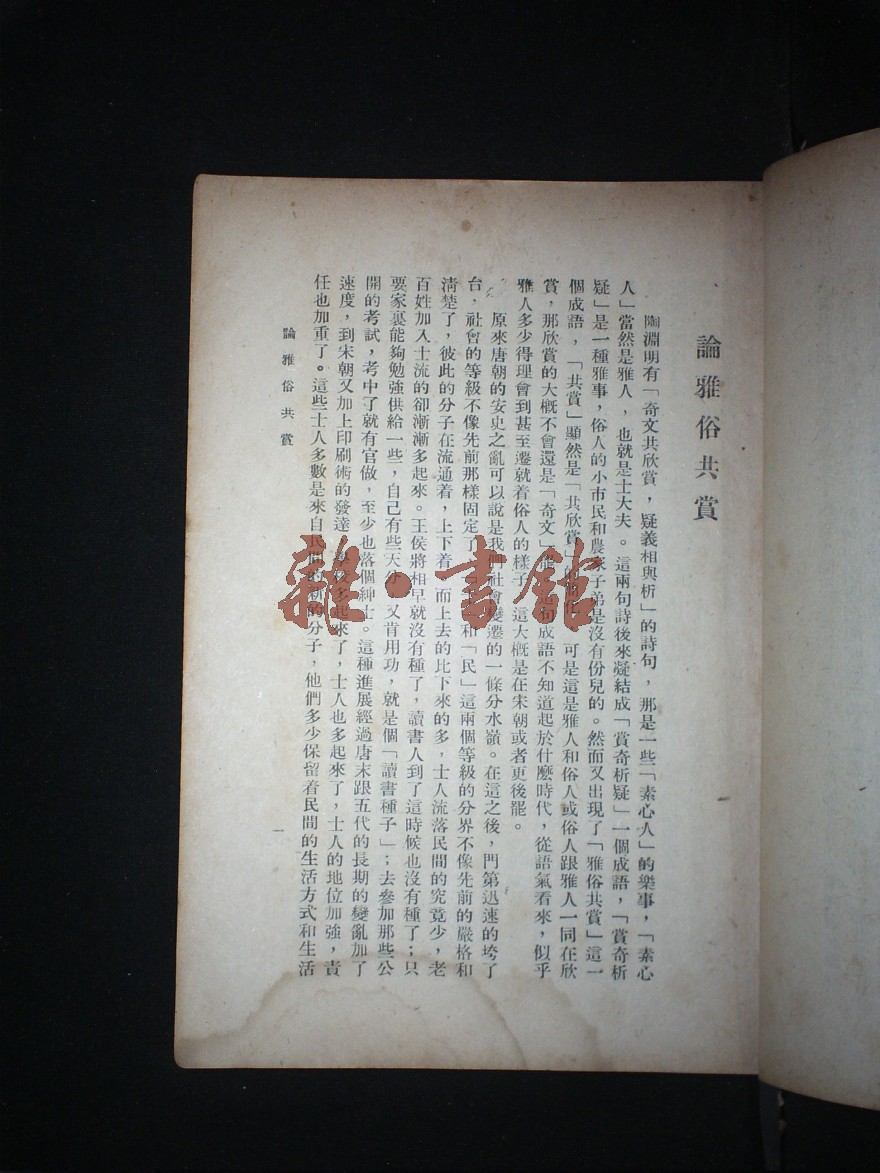 論雅俗共賞
陶淵明有「奇文共欣賞，疑義相與析」的詩句，那是一些「素心人」的樂事，「素心
人」當然是雅人，也就是士大夫。這兩句詩後來凝結成「賞奇析疑」一個成語，「賞奇析
疑」是一種雅事，俗人的小市民和農家子弟是沒有份兒的。然而又出現了「雅俗共賞」這一
個成語，「共賞」顯然是「共欣賞」的 可是這是雅人和俗人或俗人跟雅人一同在欣
賞，那欣賞的大概不會還是「奇文」 句成語不知道起於什麼時代，從語氣看來，似乎
雅人多少得理會到甚至遷就着俗人的樣子 這大概是在宋朝或者更後罷。
原來唐朝的安史之亂可以說是我們社會變遷的一條分水嶺。在這之後，門第迅速的垮了
台，社會的等級不像先前那樣固定了 和「民」這兩個等級的分界不像先前的嚴格和
清楚了，彼此的分子在流通着，上下着 而上去的比下來的多，士人流落民間的究竟少，老
百姓加入士流的卻漸漸多起來。王侯將相早就沒有種了，讀書人到了這時候也沒有種了；只
要家裏能夠勉強供給一些，自己有些天分 又肯用功，就是個「讀書種子」；去參加那些公
開的考試，考中了就有官做，至少也落個紳士。這種進展經過唐末跟五代的長期的變亂加了
速度，到宋朝又加上印刷術的發達 學校多起來了，士人也多起來了，士人的地位加強，責
任也加重了。這些士人多數是來自民間的新的分子，他們多少保留着民間的生活方式和生活
論雅俗共賞
一
雜·書館